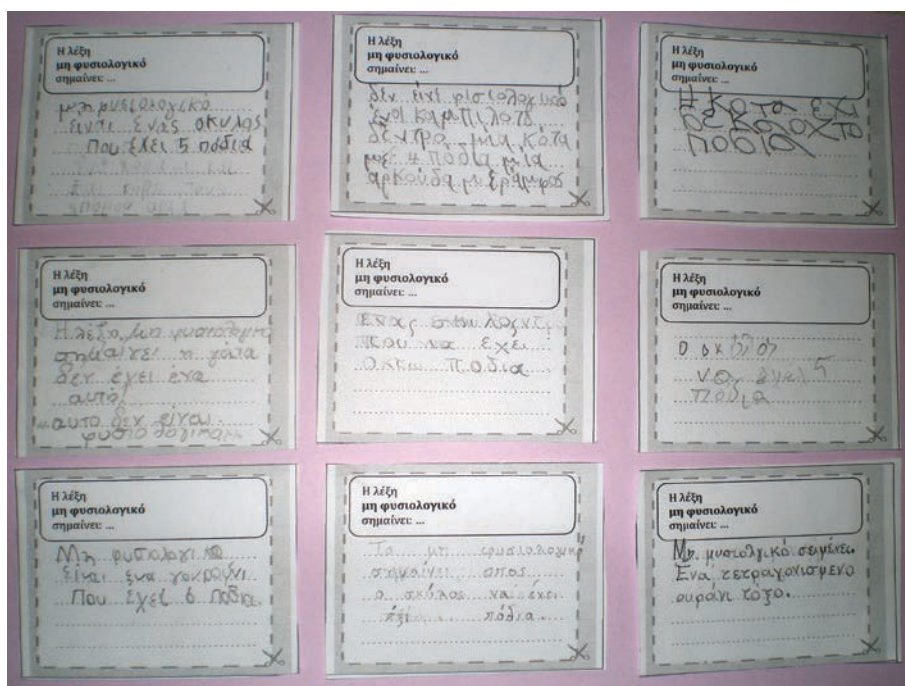 Η λέξη
μη φυσιολογικό
σημαίνει: ...
μη φυσιολογικό
είναι ένας σκυλος
που έχει 5 πόδια
Η λέξη
μη φυσιολογικό
σημαίνει: ...
δεν είνε φισιολογικό
ένα καμπιλοτό
δέντρο μια κότα
με 4 πόδια μια
αρκούδα με
Η λέξη
μη φυσιολογικό
σημαίνει: ...
Η κοτα εχι
ποδια
Η λέξη
μη φυσιολογικό
σημαίνει: ...
Η λέξη μη φυσιολογικό
σημαίνει η γάτα
δεν έχει ένα
αυτό!
αυτο δεν είναι
φυσιολογικο
Η λέξη
μη φυσιολογικό
σημαίνει: ...
Ενας
που να εχει
ποδια
Η λέξη
μη φυσιολογικό
σημαίνει: ...
να έχει 5
πόδια
Η λέξη
μη φυσιολογικό
σημαίνει: ...
Μη φυσιολογικο
είναι ένα γουρούνι
Που έχει 6 πόδια.
Η λέξη
μη φυσιολογικό
σημαίνει: ...
Το μη φυσιολογικό
σημαίνει οπος
ο σκύλος να έχει
έξι πόδια.
Η λέξη
μη φυσιολογικό
σημαίνει: ...
Μη μυσιολγικό σειμένει.
Ένα τετραγονισμενο
ουράνι τοξο.